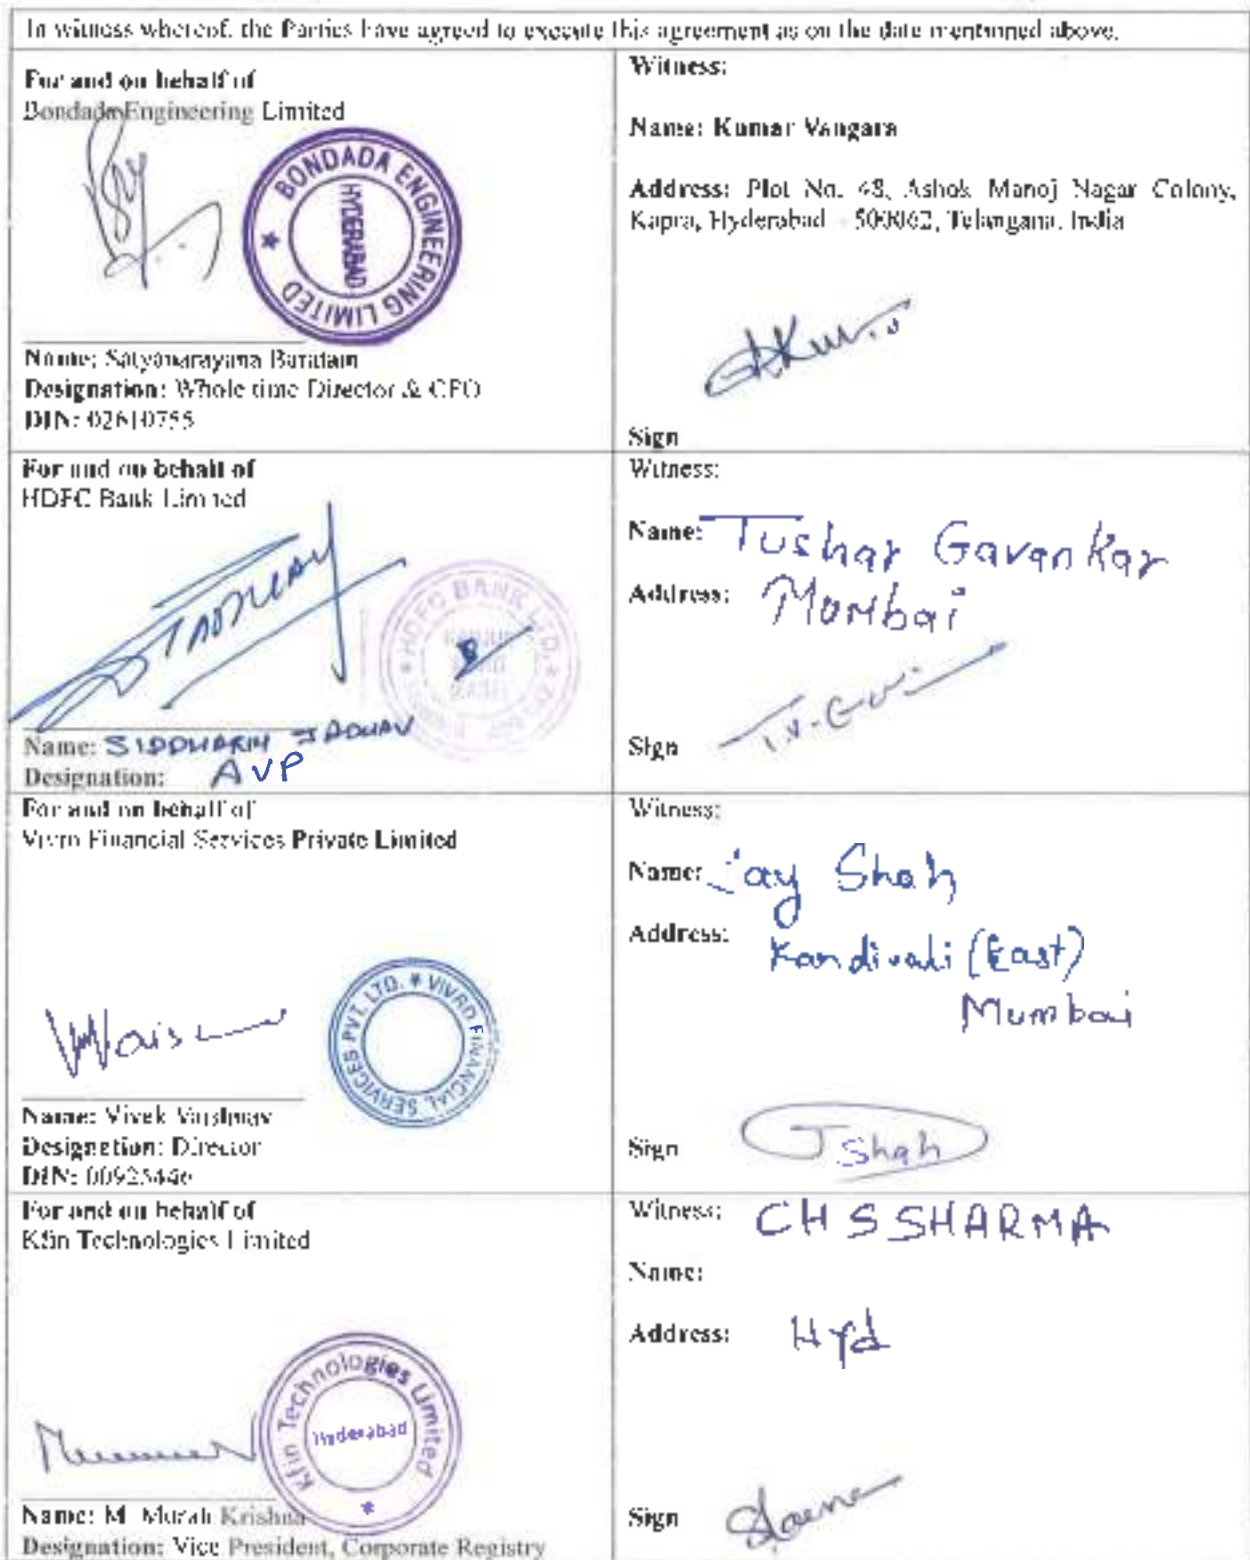 In witness whereof, the Parties have agreed to execute this agreement as on the date mentioned above.
For and on behalf of
Bondada Engineering Limited
BONDADA ENGINEERING LIMITED
HYDERABAD
Name: Satyanarayana Baratam
Designation: Whole time Director & CFO
DIN: 02610755
Witness:
Name: Kumar Vangara
Address: Plot No. 48, Ashok Manoj Nagar Colony,
Kapra, Hyderabad - 500062, Telangana, India
Sign
For and on behalf of
HDFC Bank Limited
HDFC BANK LTD.
Name: SIDDHARTH JADHAV
Designation: AVP
Witness:
Name: Tushar Gavankar
Address: Mumbai
Sign
For and on behalf of
Vivro Financial Services Private Limited
VIVRO FINANCIAL SERVICES PVT. LTD.
Name: Vivek Vaishnav
Designation: Director
DIN: 00925446
Witness:
Name: Jay Shah
Address:
Kandivali (East)
Mumbai
Sign J Shah
For and on behalf of
Kfin Technologies Limited
Kfin Technologies Limited
Hyderabad
Name: M. Murali Krishna
Designation: Vice President, Corporate Registry
Witness: CH S SHARMA
Name:
Address: Hyd
Sign